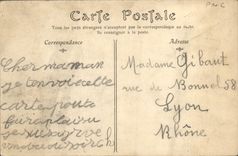 Carte Postale
Tous les pays étrangers n'acceptent pas la correspondance au recto
Se renseigner à la poste
Correspondance
Adresse
Cher maman
je tenvoi cette
carte pour te
faire plaisir
Madame Gibaut
rue de Bonnel 58
Lyon
Rhône